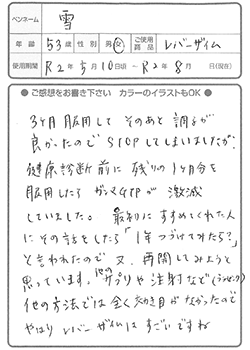 ペンネーム 雪
年齢 53才 性別 男・女 ご使用商品 レバーザイム
使用期間 R2年5月10日頃 ~ R2年8月 日(現在)
● ご感想をお書き下さい カラーのイラストもOK ●
3ヶ月服用して そのあと調子が
良かったので STOPしてしまいましたが、
健康診断前に残りの1ヶ月分を
服用したら ガンマGTPが 激減
していました。最初にすすめてくれた人
にその話をしたら「1年つづけてみたら?」
と言われたので 又、再開してみようと
思っています。他のサプリや注射など(プラセンタ)
他の方法では全く効き目がなかったので
やはり レバーザイムはすごいですね